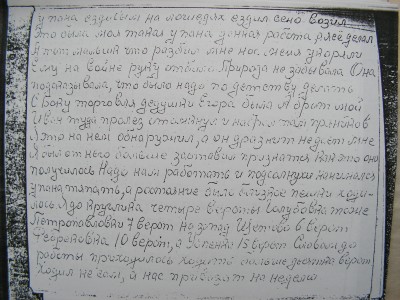 у пана ездивым на лошедях ездил сено возил
Это была моя такая у пана данная работа я все делал
А тот мывший что разбил мне нос. меня укоряли
Ему на войне руку отбило. Природа не забывала Она
подсказывала, что было надо по детству делать
С боку торговая дедушки Егора была А брат мой
Иван туда пролез и там пряников
Я это на нем обнаружил, а он дразнит не дает мне
Я был от него больше заставил признатся как это он
получилось Надо нам работать и подсолнухи
у пана тяпать, а растояние было близкое пешки ходи-
лось до Круглика четыре версты Голубовка тоже
Петропавловки 7 верст на запад Щетово 8 верст
Федоровка 10 верст, а Успенки 15 верст Словом до
работы приходилось ходить больше десятка верст
Ходил не сам, а нас привозят на неделю